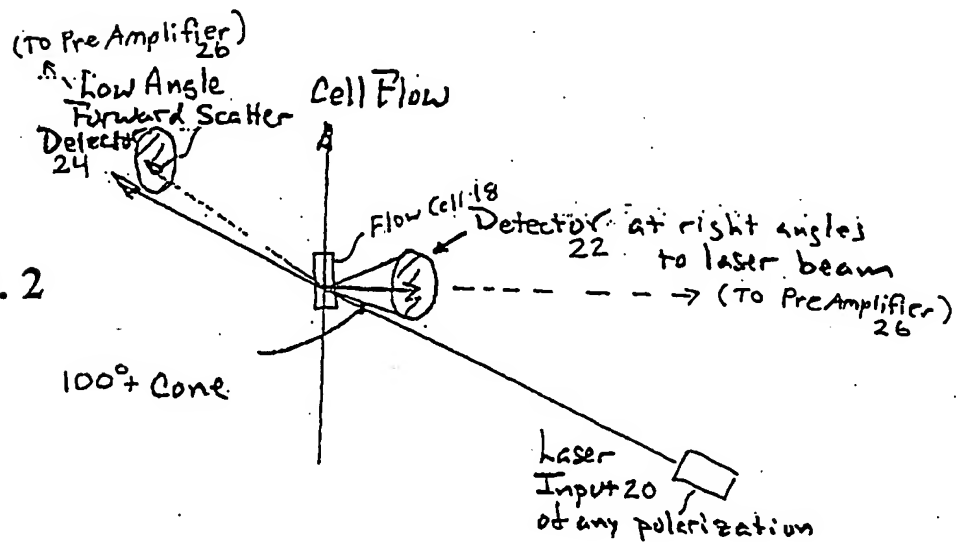 (To Pre Amplifier)
26
Low Angle
Forward Scatter
Detector
24
Cell Flow
Flow Cell 18
Detector at right angles
22
to laser beam
(To PreAmplifier)
26
. 2
100°+ Cone
Laser
Input 20
of any polarization